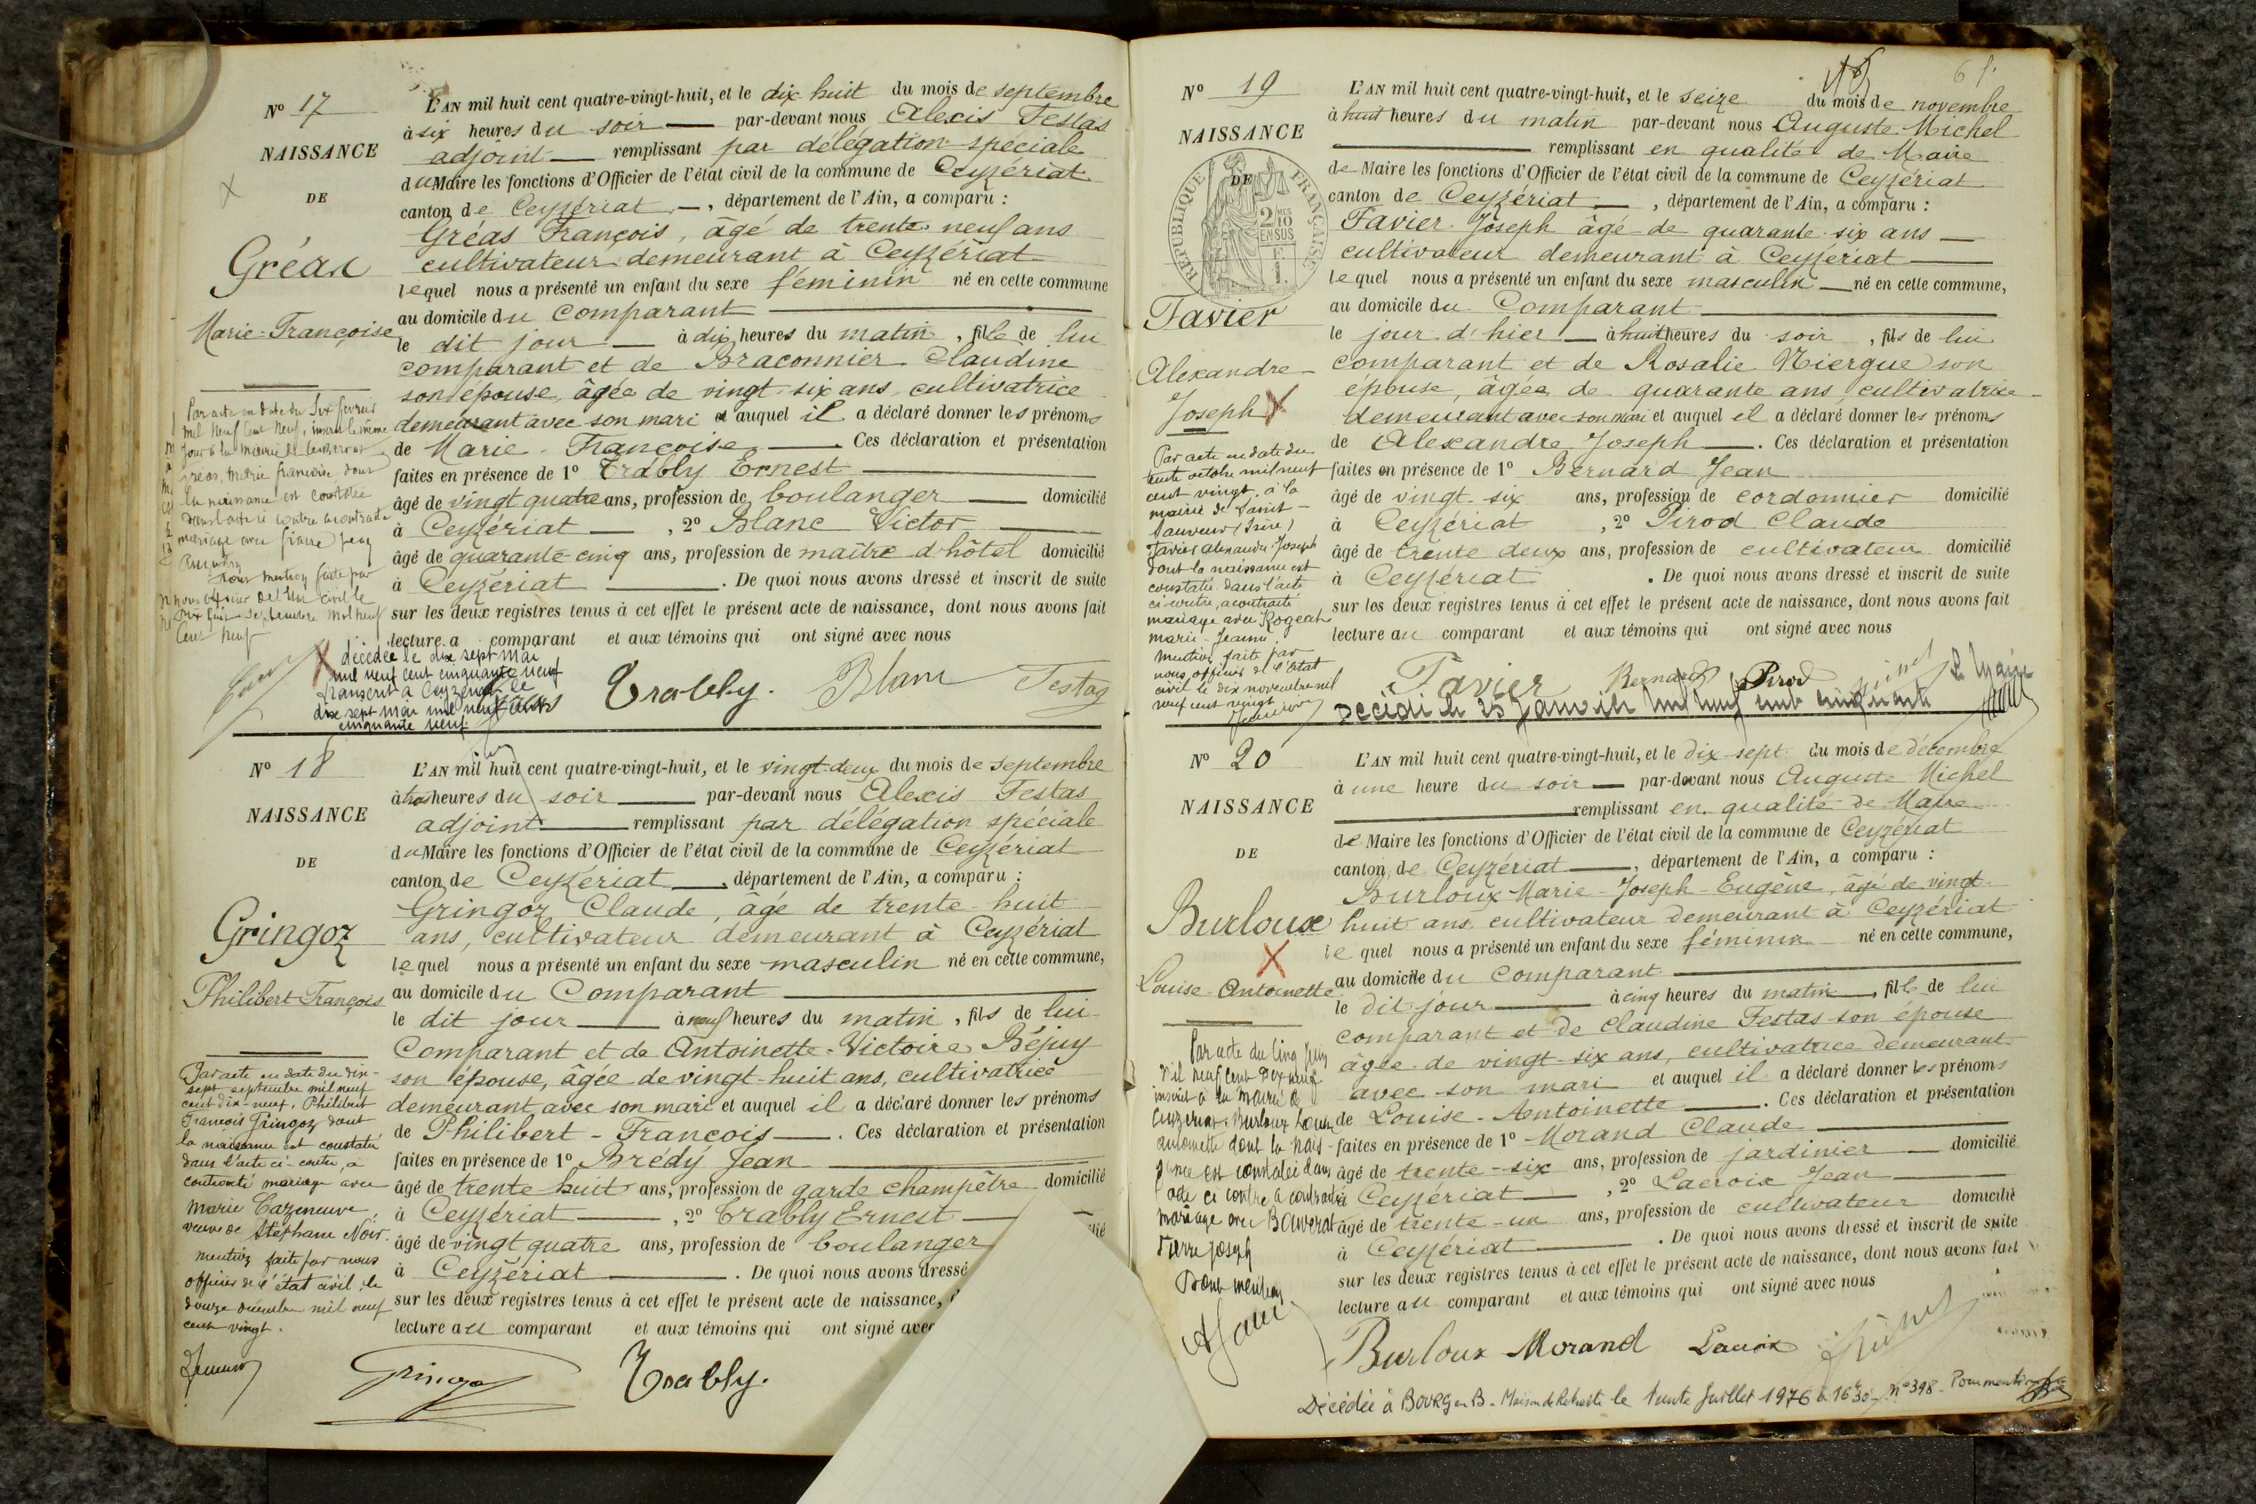 Nº 17
NAISSANCE
DE
Gréas
Marie-Françoise
L'AN mil huit cent quatre-vingt-huit, et le dix huit du mois de septembre
à six heures du soir par-devant nous Alexis Festas
adjoint remplissant par délégation spéciale
du Maire les fonctions d'Officier de l'état civil de la commune de Ceyzériat
canton de Ceyzériat, département de l'Ain, a comparu :
Gréas François, âgé de trente neuf ans
cultivateur demeurant à Ceyzériat
lequel nous a présenté un enfant du sexe féminin né en cette commune
au domicile du Comparant
le dit jour à dix heures du matin, fille de lui
comparant et de Braconnier Claudine
son épouse, âgée de vingt-six ans, cultivatrice
demeurant avec son mari et auquel il a déclaré donner les prénoms
de Marie-Françoise. Ces déclaration et présentation
faites en présence de 1º Trably Ernest
âgé de vingt quatre ans, profession de boulanger domicilié
à Ceyzériat, 2º Blanc Victor
âgé de quarante-cinq ans, profession de maître d'hôtel domicilié
à Ceyzériat. De quoi nous avons dressé et inscrit de suite
sur les deux registres tenus à cet effet le présent acte de naissance, dont nous avons fait
lecture a comparant et aux témoins qui ont signé avec nous
Par acte en date du six février
mil neuf cent neuf, inscrit le même
jour à la mairie de Ceyzériat
Gréas, Marie françoise dont
la naissance est constatée
dans l'acte ci contre a contracté
mariage avec
Pour mention faite par
nous officier de l'état civil le
dix huit septembre mil neuf
cent neuf
décédée le dix sept mai
mil neuf cent cinquante neuf
transcrit à Ceyzériat le
dix sept mai mil neuf cent
cinquante neuf
Gréas Trably. Blanc Festas
Nº 18
NAISSANCE
DE
Gringoz
Philibert François
L'AN mil huit cent quatre-vingt-huit, et le vingt-deux du mois de septembre
à trois heures du soir par-devant nous Alexis Festas
adjoint remplissant par délégation spéciale
du Maire les fonctions d'Officier de l'état civil de la commune de Ceyzériat
canton de Ceyzériat, département de l'Ain, a comparu :
Gringoz Claude, âgé de trente-huit
ans, cultivateur demeurant à Ceyzériat
lequel nous a présenté un enfant du sexe masculin né en cette commune,
au domicile du Comparant
le dit jour à neuf heures du matin, fils de lui
Comparant et de Antoinette-Victoire Béjuy
son épouse, âgée de vingt-huit ans, cultivatrice
demeurant avec son mari et auquel il a déclaré donner les prénoms
de Philibert-François. Ces déclaration et présentation
faites en présence de 1º Brédy Jean
âgé de trente huit ans, profession de garde champêtre domicilié
à Ceyzériat, 2º Trably Ernest
âgé de vingt quatre ans, profession de boulanger
à Ceyzériat. De quoi nous avons dressé
sur les deux registres tenus à cet effet le présent acte de naissance,
lecture au comparant et aux témoins qui ont signé avec
Par acte en date du dix-
sept septembre mil neuf
cent dix-neuf, Philibert
François Gringoz dont
la naissance est constatée
dans l'acte ci-contre, a
contracté mariage avec
Marie Cazeneuve,
veuve de Stéphane Noir.
Mention faite par nous
officier de l'état civil, le
douze décembre mil neuf
cent vingt.
Gringoz Trably.
Nº 19
NAISSANCE
DE
RÉPUBLIQUE FRANÇAISE
Favier
Alexandre-
Joseph
L'AN mil huit cent quatre-vingt-huit, et le seize du mois de novembre
à huit heures du matin par-devant nous Auguste Michel
remplissant en qualité de Maire
de Maire les fonctions d'Officier de l'état civil de la commune de Ceyzériat
canton de Ceyzériat, département de l'Ain, a comparu :
Favier Joseph âgé de quarante-six ans
cultivateur demeurant à Ceyzériat
lequel nous a présenté un enfant du sexe masculin né en cette commune,
au domicile du Comparant
le jour d'hier à huit heures du soir, fils de lui
comparant et de Rosalie Niergue son
épouse, âgée de quarante ans, cultivatrice
demeurant avec son mari et auquel il a déclaré donner les prénoms
de Alexandre Joseph. Ces déclaration et présentation
faites en présence de 1º Bernard Jean
âgé de vingt-six ans, profession de cordonnier domicilié
à Ceyzériat, 2º Pirod Claude
âgé de trente deux ans, profession de cultivateur domicilié
à Ceyzériat. De quoi nous avons dressé et inscrit de suite
sur les deux registres tenus à cet effet le présent acte de naissance, dont nous avons fait
lecture au comparant et aux témoins qui ont signé avec nous
Par acte en date du
trente octobre mil neuf
cent vingt, à la
mairie de Saint-
Sauveur (Isère)
Favier Alexandre Joseph
dont la naissance est
constatée dans l'acte
ci-contre, a contracté
mariage avec Rogeat
Marie-Jeanne.
Mention faite par
nous, officier de l'état
civil le dix novembre mil
neuf cent vingt
Favier Bernard Pirod
Décédé le 25 Janvier mil neuf cent cinquante Le Maire
Nº 20
NAISSANCE
DE
Burloux
Louise-Antoinette
L'AN mil huit cent quatre-vingt-huit, et le dix-sept du mois de décembre
à une heure du soir par-devant nous Auguste Michel
remplissant en qualité de Maire
de Maire les fonctions d'Officier de l'état civil de la commune de Ceyzériat
canton de Ceyzériat, département de l'Ain, a comparu :
Burloux Marie-Joseph-Eugène, âgé de vingt-
huit ans, cultivateur demeurant à Ceyzériat
lequel nous a présenté un enfant du sexe féminin né en cette commune,
au domicile du Comparant
le dit jour à cinq heures du matin, fille de lui
comparant et de Claudine Festas son épouse
âgée de vingt-six ans, cultivatrice demeurant
avec son mari et auquel il a déclaré donner les prénoms
de Louise-Antoinette. Ces déclaration et présentation
faites en présence de 1º Morand Claude
âgé de trente-six ans, profession de jardinier domicilié
à Ceyzériat, 2º Lacroix Jean
âgé de trente-un ans, profession de cultivateur domicilié
à Ceyzériat. De quoi nous avons dressé et inscrit de suite
sur les deux registres tenus à cet effet le présent acte de naissance, dont nous avons fait
lecture au comparant et aux témoins qui ont signé avec nous
Par acte du cinq juin
mil neuf cent dix neuf
inscrit à la mairie de
Ceyzériat, Burloux Louise
antoinette dont la nais-
sance est constatée dans
l'acte ci contre a contracté
mariage avec Bauverat
Pierre Joseph
Dont mention
Burloux Morand Lacroix
Décédée à BOURG en B. Maison de Retraite le trente Juillet 1976 à 16h30 nº 398. Pour mention